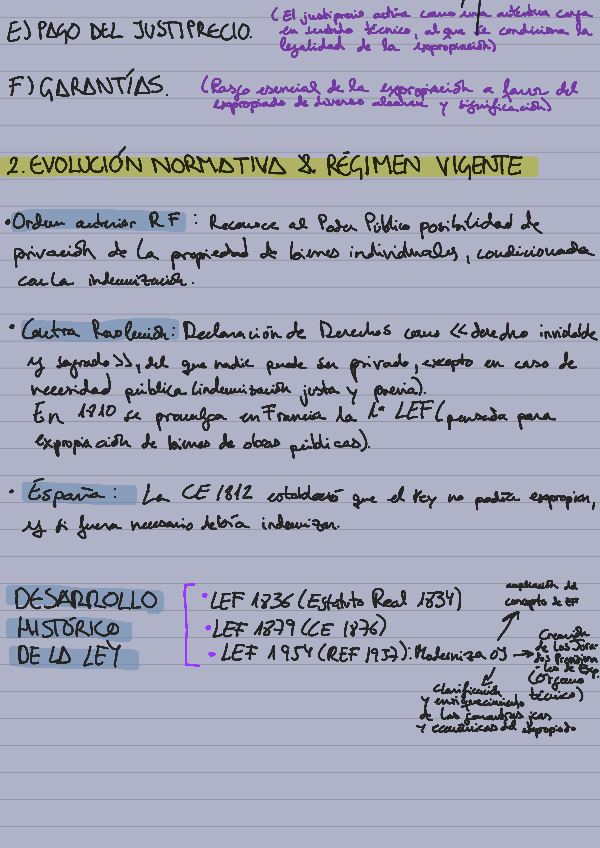 E) PAGO DEL JUSTIPRECIO.
(El justiprecio actúa como una auténtica carga
en sentido técnico, al que se condiciona la
legalidad de la expropiación)
F) GARANTÍAS.
(Rasgo esencial de la expropiación a favor del
expropiado de diverso alcance y significación)
2. EVOLUCIÓN NORMATIVA & RÉGIMEN VIGENTE
• Orden anterior RF : Reconoce al Poder Público posibilidad de
privación de la propiedad de bienes individuales, condicionada
con la indemnización.
• Contra Revolución: Declaración de Derechos como <<derecho inviolable
y sagrado>>, del que nadie puede ser privado, excepto en caso de
necesidad pública (indemnización justa y previa).
En 1810 se promulga en Francia la 1ª LEF (pensada para
expropiación de bienes de obras públicas).
• España: La CE 1812 estableció que el rey no podía expropiar,
y si fuera necesario debería indemnizar.
DESARROLLO
HISTÓRICO
DE LA LEY
• LEF 1836 (Estatuto Real 1834)
• LEF 1879 (CE 1876)
• LEF 1954 (REF 1957): Moderniza OJ
ampliación del
concepto de EF
Creación
de los Jura-
dos Provincia-
les de Exp.
(órgano
técnico)
Clarificación
y enriquecimiento
de las garantías jcas
y económicas del expropiado